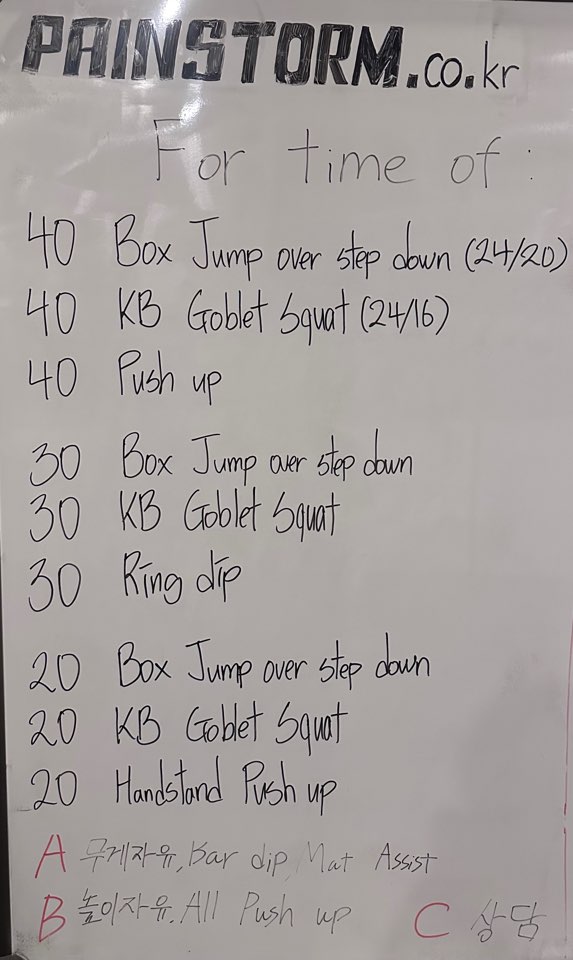 PAINSTORM.co.kr
For time of :
40 Box Jump over step down (24/20)
40 KB Goblet Squat (24/16)
40 Push up
30 Box Jump over step down
30 KB Goblet Squat
30 Ring dip
20 Box Jump over step down
20 KB Goblet Squat
20 Handstand Push up
A 무게자유, Bar dip, Mat Assist
B 높이자유, All Push up C 상담